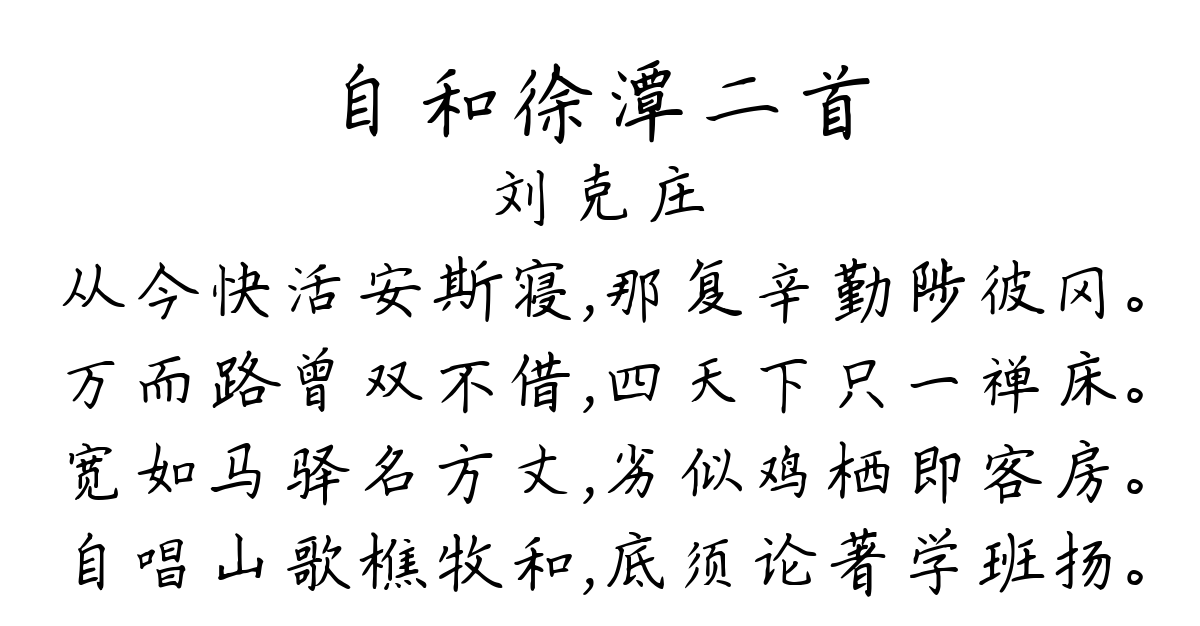 自和徐潭二首
刘克庄
从今快活安斯寝,那复辛勤陟彼冈。
万而路曾双不借,四天下只一禅床。
宽如马驿名方丈,劣似鸡栖即客房。
自唱山歌樵牧和,底须论著学班扬。